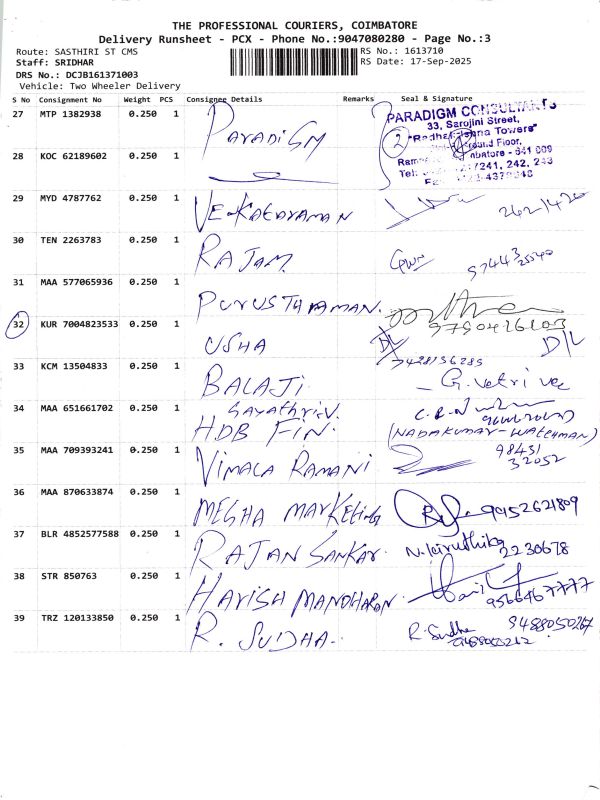 THE PROFESSIONAL COURIERS, COIMBATORE
Delivery Runsheet - PCX - Phone No.:9047080280 - Page No.:3
Route: SASTHIRI ST CMS RS No.: 1613710
Staff: SRIDHAR RS Date: 17-Sep-2025
DRS No.: DCJB161371003
Vehicle: Two Wheeler Delivery
S No Consignment No Weight PCS Consignee Details Remarks Seal & Signature
27 MTP 1382938 0.250 1 PARADIGM
PARADIGM CONSULTANTS
33, Sarojini Street,
Towers"
Ground Floor,
641 009
7241, 242, 243
28 KOC 62189602 0.250 1
29 MYD 4787762 0.250 1 VENKATARAMAN
30 TEN 2263783 0.250 1 RAJAM
31 MAA 577065936 0.250 1 PURUSTHRAMAN
32 KUR 7004823533 0.250 1 USHA D/L D/L
33 KCM 13504833 0.250 1 BALAJI
34 MAA 651661702 0.250 1 Gayathri.V.
HDB FIN. (NADAKUMAR-WATCHMAN)
35 MAA 709393241 0.250 1 VIMALA RAMANI 98431
32052
36 MAA 870633874 0.250 1 MEGHA MARKETING 9952621809
37 BLR 4852577588 0.250 1 RAJAN SANKAR. N.kiruthika 2230678
38 STR 850763 0.250 1 HARISH MANOHARAN 9566467777
39 TRZ 120133850 0.250 1 R. SUDHA. R. Sudha 9488050267